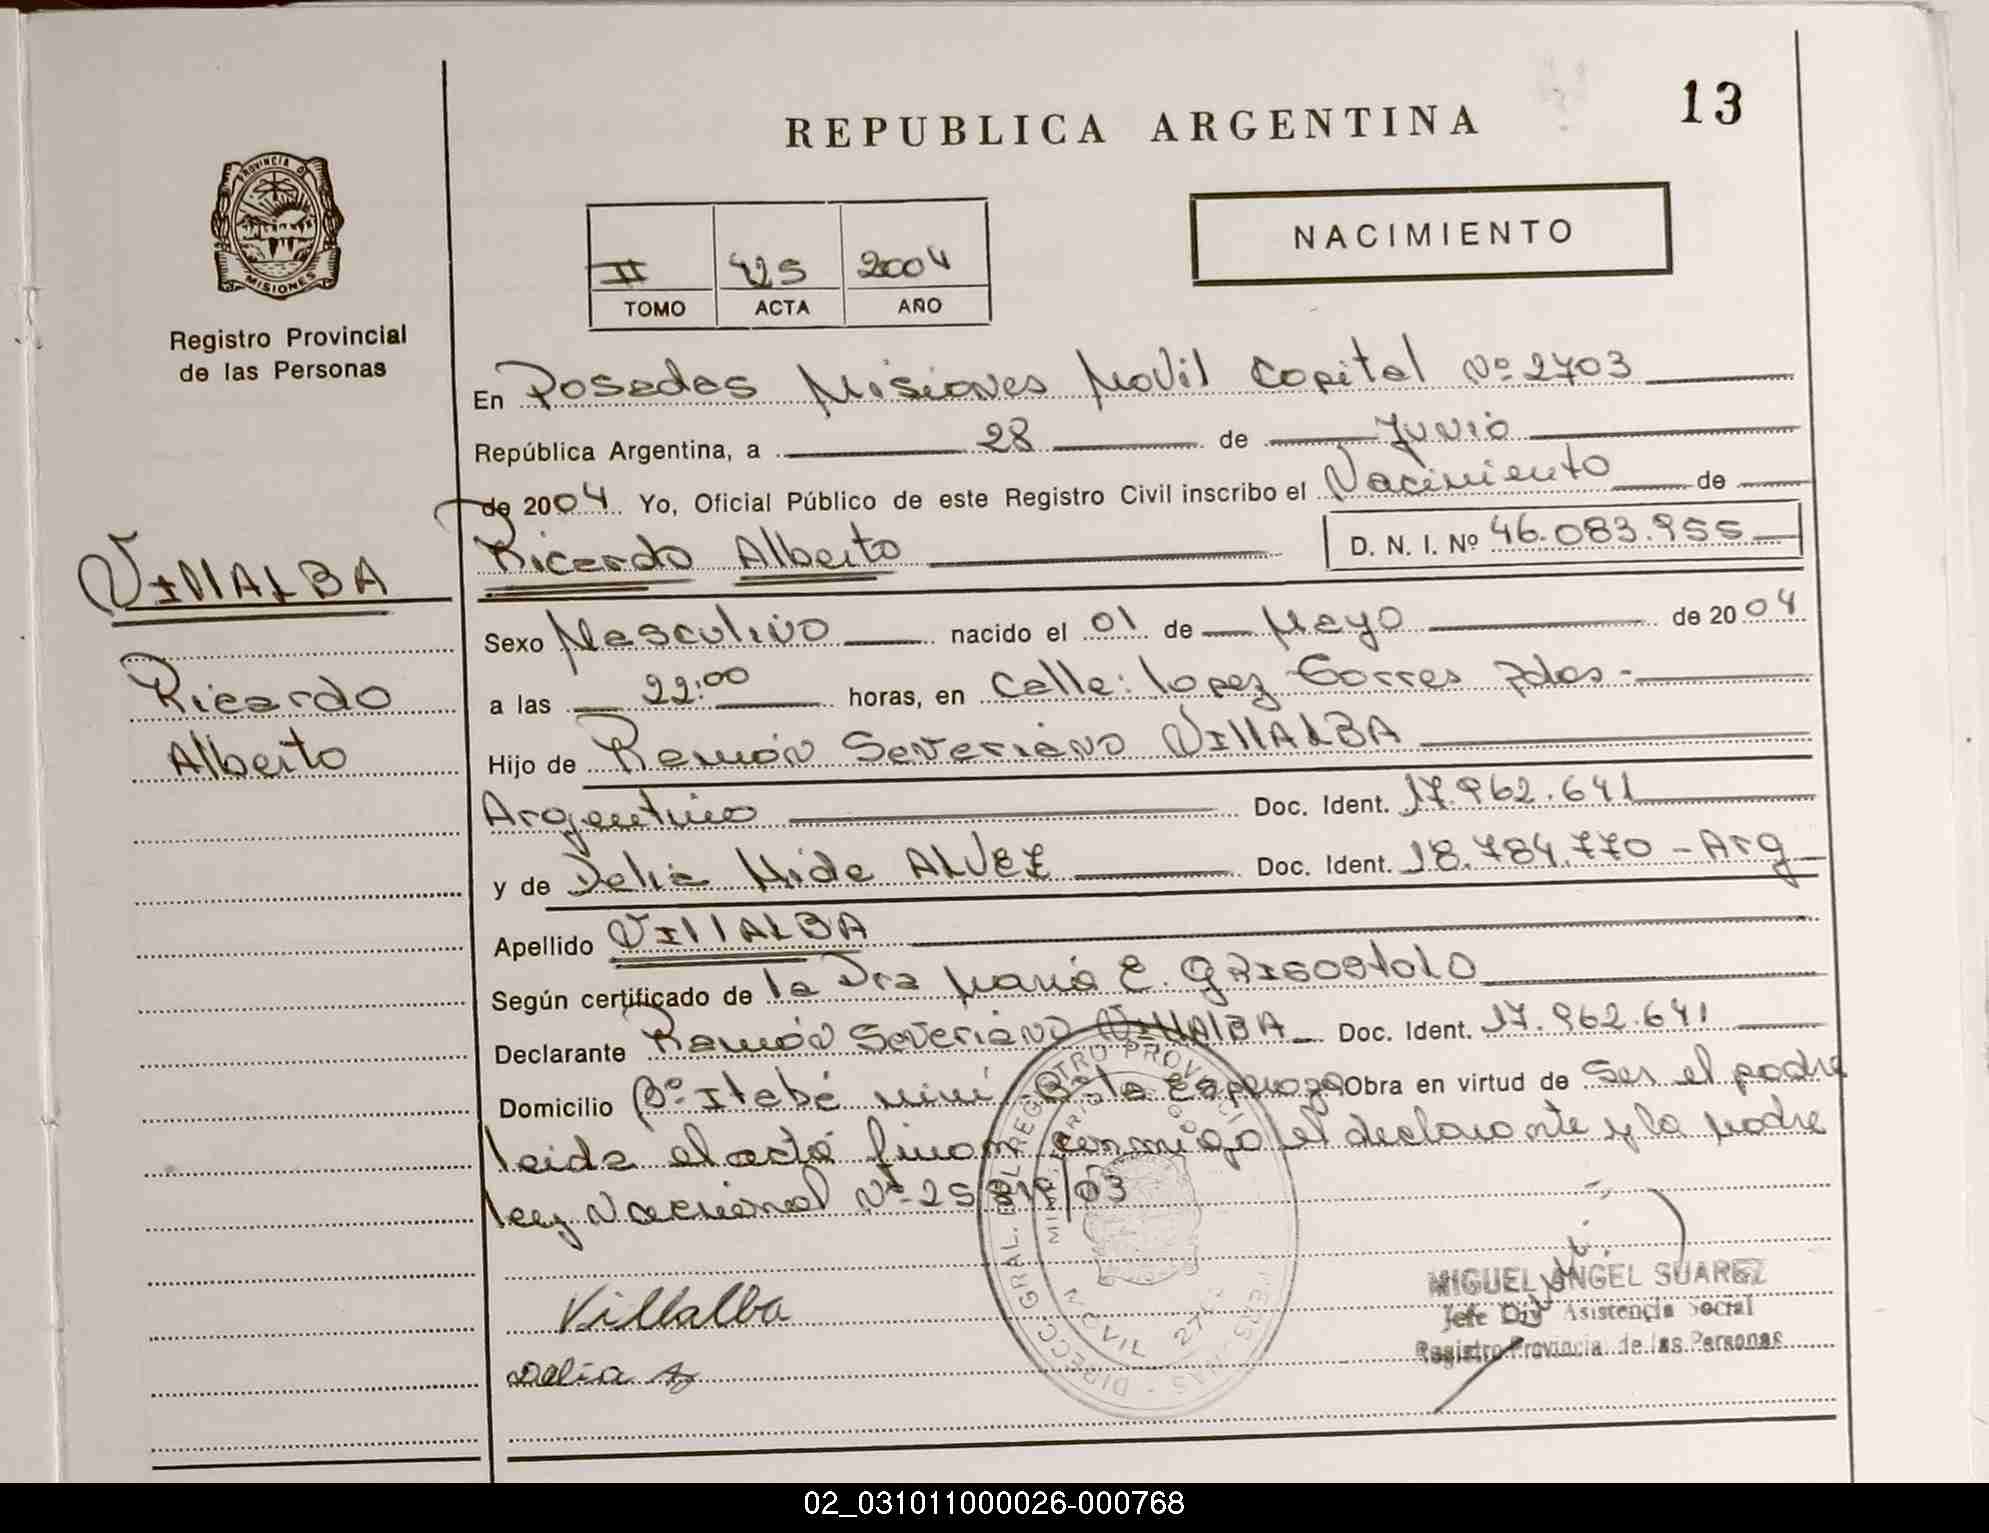 REPUBLICA ARGENTINA
13
PROVINCIA DE
MISIONES
Registro Provincial
de las Personas
NACIMIENTO
II 425 2004
TOMO ACTA AÑO
En Posadas Misiones Movil Capital Nº 2703
República Argentina, a 28 de Junio
de 2004. Yo, Oficial Público de este Registro Civil inscribo el Nacimiento de
Ricardo Alberto D. N. I. Nº 46.083.955
VILLALBA
Ricardo
Alberto
Sexo Masculino nacido el 01 de Mayo de 2004
a las 22:00 horas, en Calle: Lopez Torres Pdas-
Hijo de Ramón Severiano VILLALBA
Argentino Doc. Ident. 17.962.641
y de Delia ALVEZ Doc. Ident. 18.784.770 - Arg
Apellido VILLALBA
Según certificado de la Dra María E. GRISOSTOLO
Declarante Ramón Severiano VILLALBA Doc. Ident. 17.962.641
Domicilio Bº Itabé miní Obra en virtud de Ser el padre
leida el acta firman conmigo el declarante y la madre
ley Nacional Nº 25
Villalba
Delia
DIRECC. GRAL. DEL REGISTRO PROVINCI
MOVIL
MIGUEL ANGEL SUAREZ
Jefe Div Asistencia Social
Registro Provincia. de las Personas
02_031011000026-000768